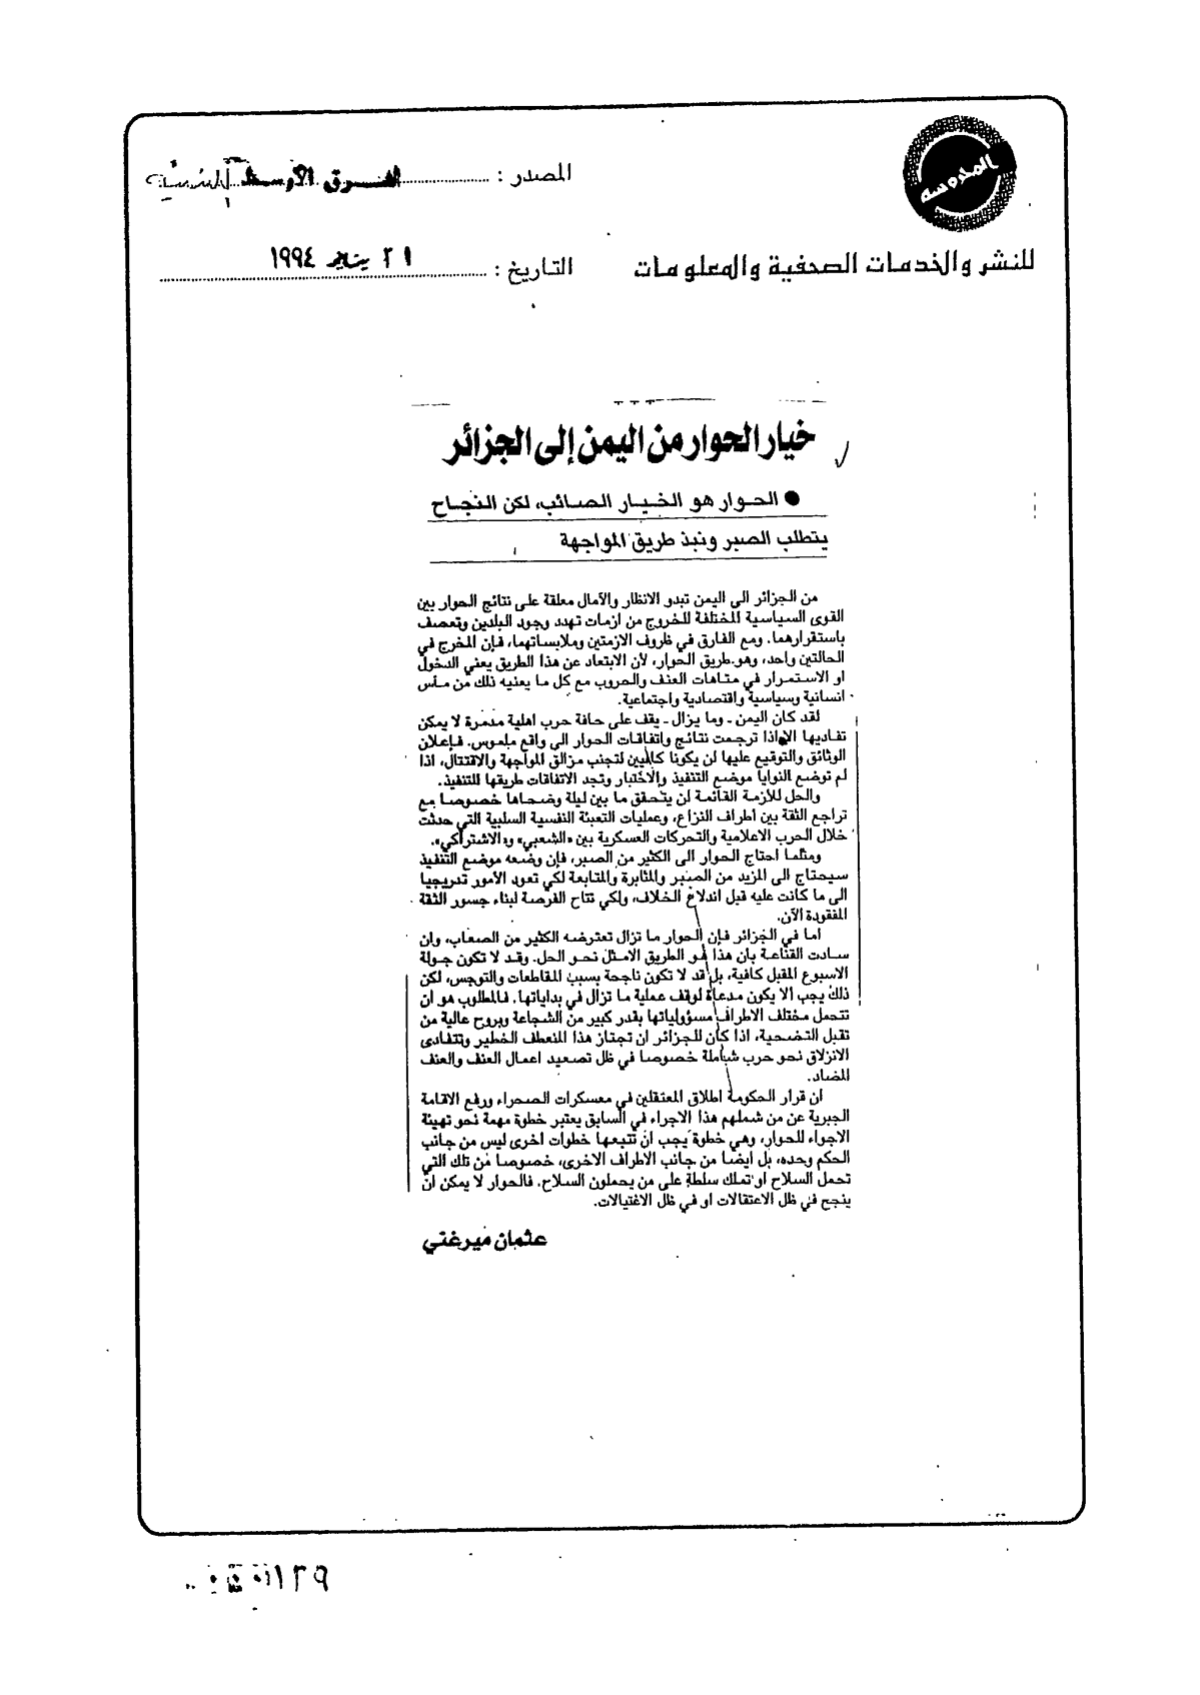 المحروسه
المصدر : الشرق الأوسط اللندنية
للنشر والخدمات الصحفية والمعلومات
التاريخ : ٢١ يناير ١٩٩٤
خيار الحوار من اليمن إلى الجزائر
● الحوار هو الخيار الصائب، لكن النجاح
يتطلب الصبر ونبذ طريق المواجهة
من الجزائر الى اليمن تبدو الانظار والآمال معلقة على نتائج الحوار بين
القوى السياسية المختلفة للخروج من ازمات تهدد وجود البلدين وتعصف
باستقرارهما. ومع الفارق في ظروف الازمتين وملابساتهما، فإن المخرج في
الحالتين واحد، وهو طريق الحوار، لأن الابتعاد عن هذا الطريق يعني الدخول
او الاستمرار في متاهات العنف والحروب مع كل ما يعنيه ذلك من مآس
انسانية وسياسية واقتصادية واجتماعية.
لقد كان اليمن ـ وما يزال ـ يقف على حافة حرب اهلية مدمرة لا يمكن
تفاديها الا اذا ترجمت نتائج واتفاقات الحوار الى واقع ملموس. فإعلان
الوثائق والتوقيع عليها لن يكونا كافيين لتجنب مزالق المواجهة والاقتتال، اذا
لم توضع النوايا موضع التنفيذ والاختبار وتجد الاتفاقات طريقها للتنفيذ.
والحل للازمة القائمة لن يتحقق ما بين ليلة وضحاها خصوصا مع
تراجع الثقة بين أطراف النزاع، وعمليات التعبئة النفسية السلبية التي حدثت
خلال الحرب الاعلامية والتحركات العسكرية بين «الشعبي» و«الاشتراكي».
ومثلما احتاج الحوار الى الكثير من الصبر، فإن وضعه موضع التنفيذ
سيحتاج الى المزيد من الصبر والمثابرة والمتابعة لكي تعود الأمور تدريجيا
الى ما كانت عليه قبل اندلاع الخلاف، ولكي تتاح الفرصة لبناء جسور الثقة
المفقودة الآن.
اما في الجزائر فإن الحوار ما تزال تعترضه الكثير من الصعاب، وان
سادت القناعة بان هذا هو الطريق الامثل نحو الحل. وقد لا تكون جولة
الاسبوع المقبل كافية، بل قد لا تكون ناجحة بسبب المقاطعات والتوجس، لكن
ذلك يجب ألا يكون مدعاة لوقف عملية ما تزال في بداياتها. فالمطلوب هو ان
تتحمل مختلف الاطراف مسؤولياتها بقدر كبير من الشجاعة وبروح عالية من
تقبل التضحية، اذا كان للجزائر ان تجتاز هذا المنعطف الخطير وتتفادى
الانزلاق نحو حرب شاملة خصوصا في ظل تصعيد اعمال العنف والعنف
المضاد.
ان قرار الحكومة اطلاق المعتقلين في معسكرات الصحراء ورفع الاقامة
الجبرية عن من شملهم هذا الاجراء في السابق يعتبر خطوة مهمة نحو تهيئة
الاجواء للحوار، وهي خطوة يجب ان تتبعها خطوات اخرى ليس من جانب
الحكم وحده، بل ايضا من جانب الاطراف الاخرى، خصوصا من تلك التي
تحمل السلاح او تملك سلطة على من يحملون السلاح. فالحوار لا يمكن ان
ينجح في ظل الاعتقالات او في ظل الاغتيالات.
عثمان ميرغني